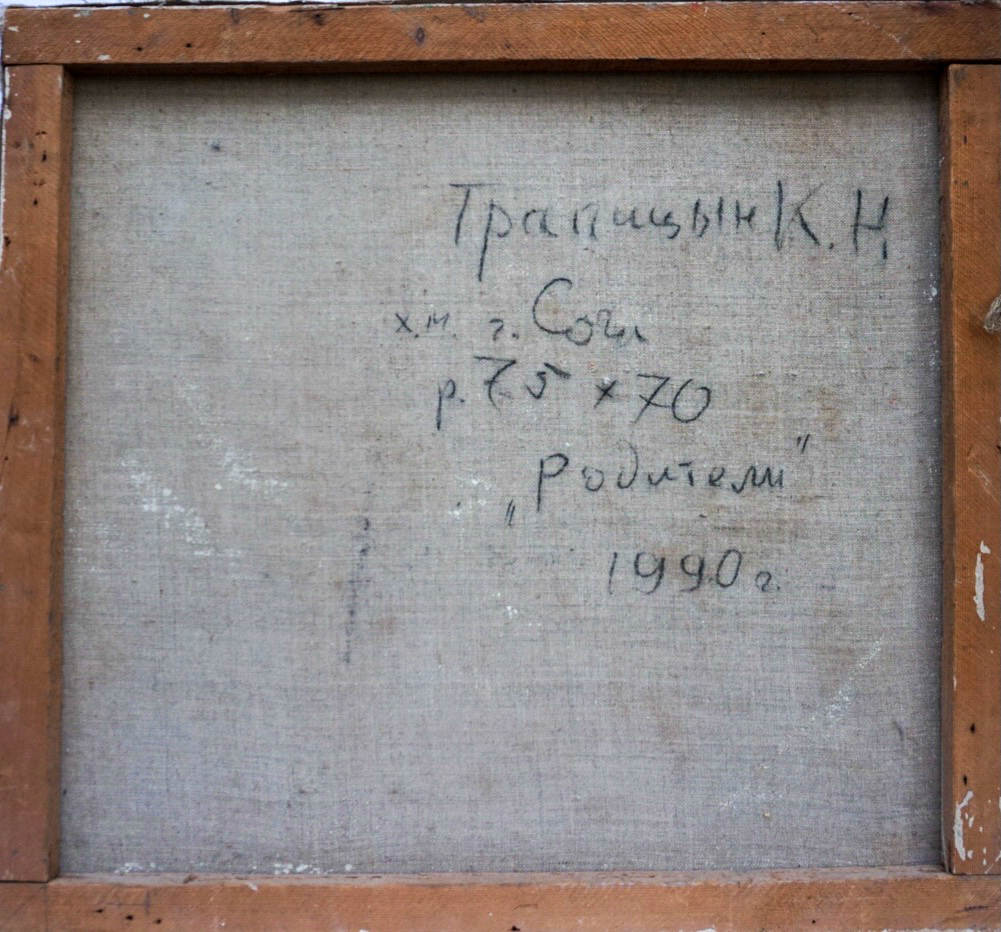 Трапицын К. Н
х.м. г. Сочи
р. 75 x 70
„Родители"
1990 г.